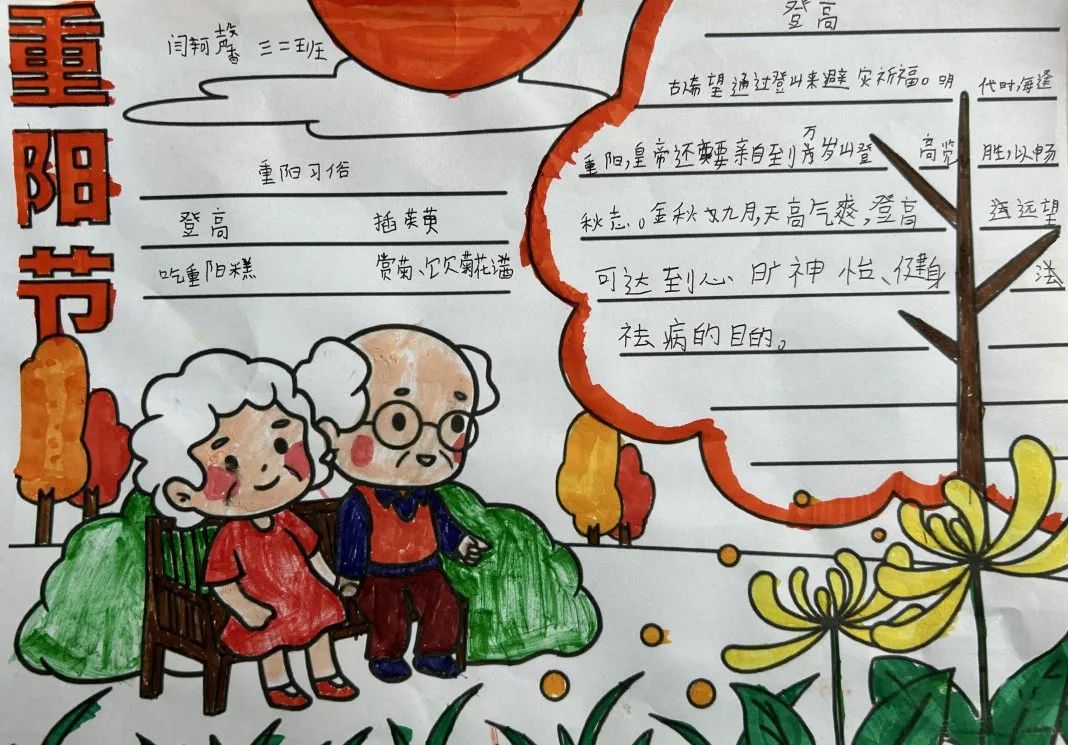 重阳节
闫轲馨 三二班
重阳习俗
登高 插茱萸
吃重阳糕 赏菊、饮菊花酒
登高
古希望通过登山来避灾祈福。明代时每逢
重阳,皇帝还要亲自到万岁山登高览胜,以畅
秋志。金秋九月,天高气爽,登高远望
可达到心旷神怡、健身
祛病的目的。